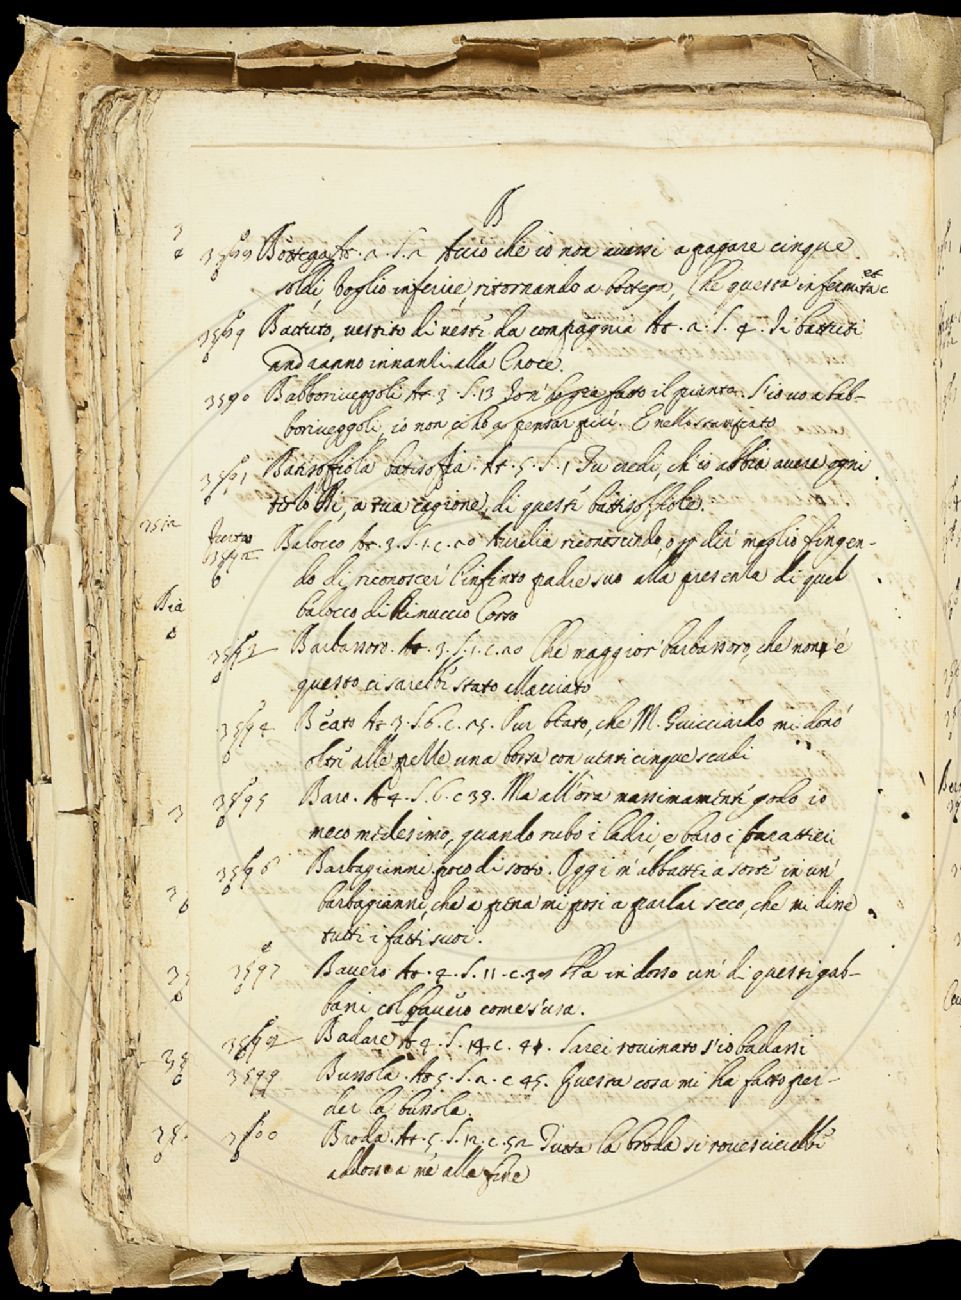 B
3588 Bottega At. 2. S. 2 Accio che io non avessi a pagare cinque
soldi, voglio inferire, ritornando a bottega, Che questa infermità et
3589 Battuto, vestito di vesti da compagnia At. 2. S. 4. I battuti
andranno innanzi alla Croce.
3590 Babboriveggoli At. 3 S. 13 Io n'ho gia fatto il pianto. S'io vo a bab-
boriveggoli, io non ci ho a pensar più. E nello stampato
3591 Battisoffiola battisoffia. At. 5. S. 1 Tu credi, ch'io abbia avere ogni
dì, a tua cagione, di queste battisoffiole.
3592 Balocco At. 3. S. 1. c. 20 Aurelia riconoscendo, o per dir meglio fingen-
do di riconoscer l'infinto padre suo alla presenza di quel
balocco di Rinuccio Corso
Bia
3593 Barbassoro. At. 3. S. 1. c. 20 Che maggior barbassoro, che non è
questo ci sarebbe stato
3594 Beato At 3. S. 6. c. 25. Pur beato, che M. Guicciardo mi donò
oltre alle pelle una borsa con venticinque scudi
3595 Baro. At 4. S. 6. c 38. Ma all'ora massimamente godo io
meco medesimo, quando rubo i ladri, e baro i barattieri
3596 Barbagianni poco di sotto. Oggi m'abbattei a sorte in un
barbagianni, che a pena mi posi a parlar seco, che mi disse
tutti i fatti suoi.
3597 Bavero At. 4. S. 11. c. 39 Ha in dosso un di questi gab-
bani col bavero come s'usa.
3598 Badare At 4. S. 14. c. 41. Sarei rovinato s'io badassi
3599 Bussola. At 5. S. 2. c 45. Questa cosa mi ha fatto per-
der la bussola.
3600 Broda. At. 5. S. 12. c. 52 Tutta la broda si rovescierebbe
addosso a me alla fine